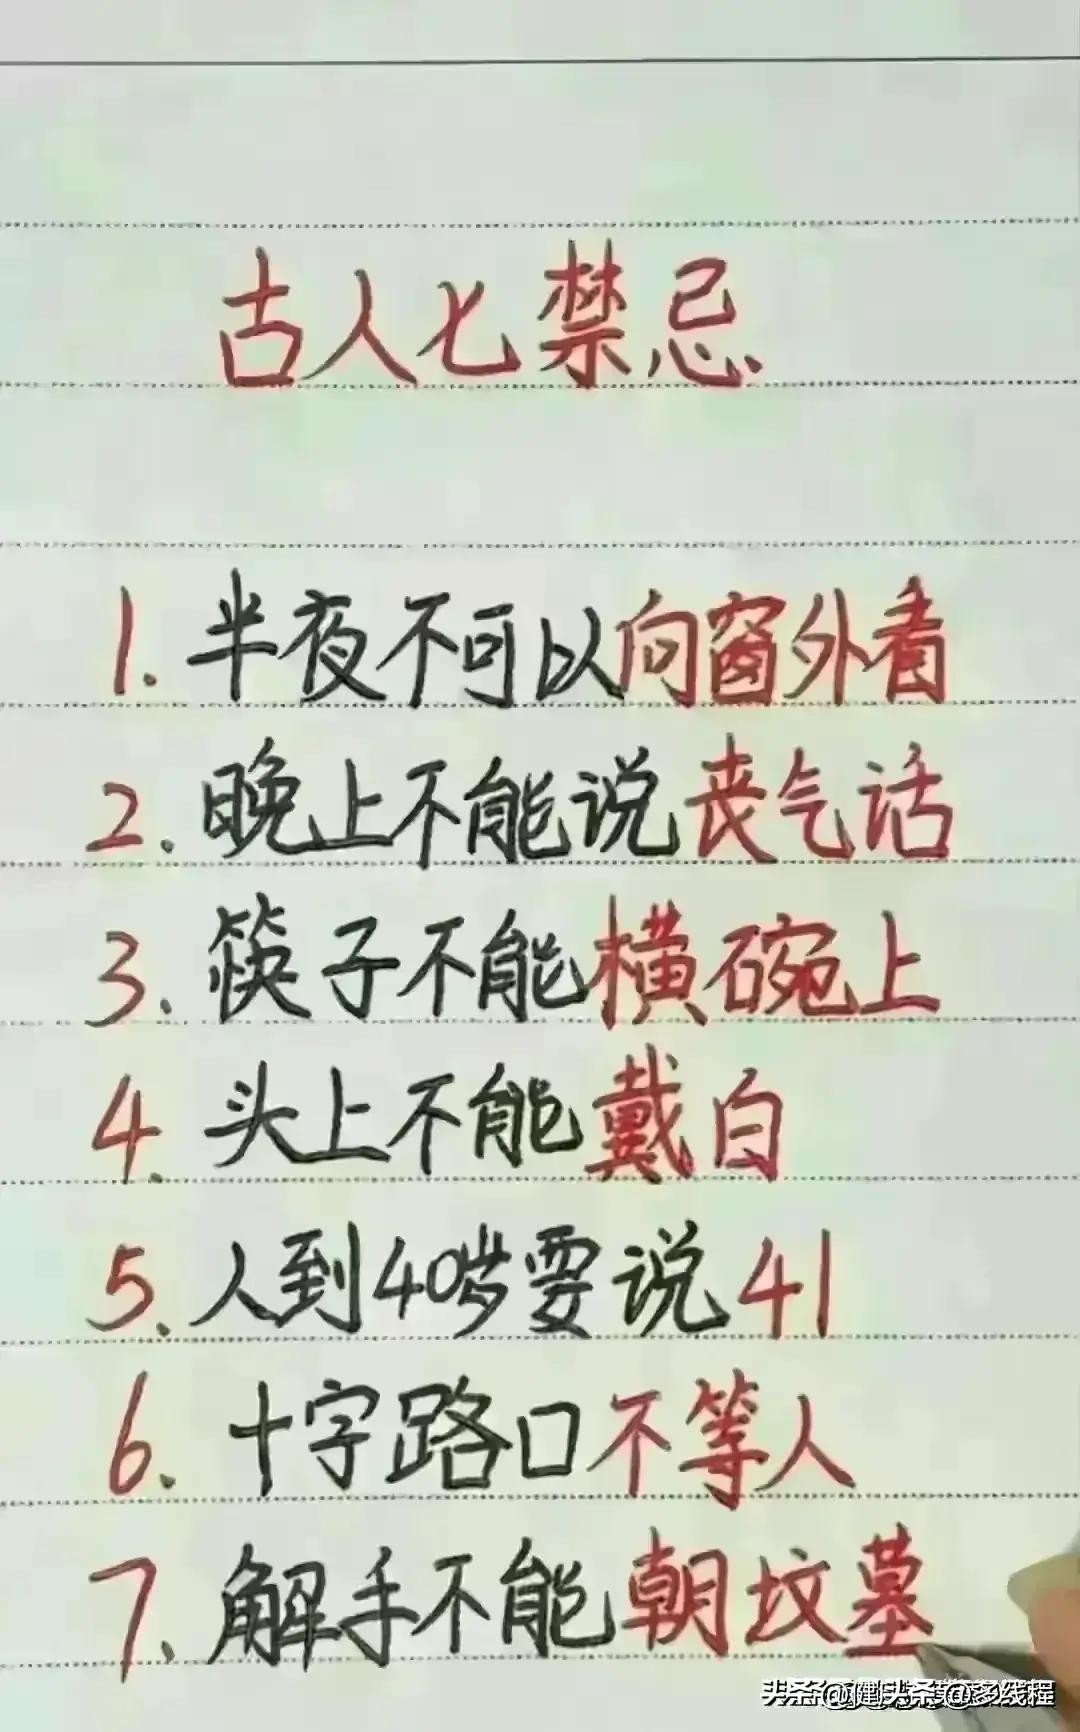 古人七禁忌
1. 半夜不可以向窗外看
2. 晚上不能说丧气话
3. 筷子不能横碗上
4. 头上不能戴白
5. 人到40岁要说41
6. 十字路口不等人
7. 解手不能朝坟墓
头条@健头条@多线程